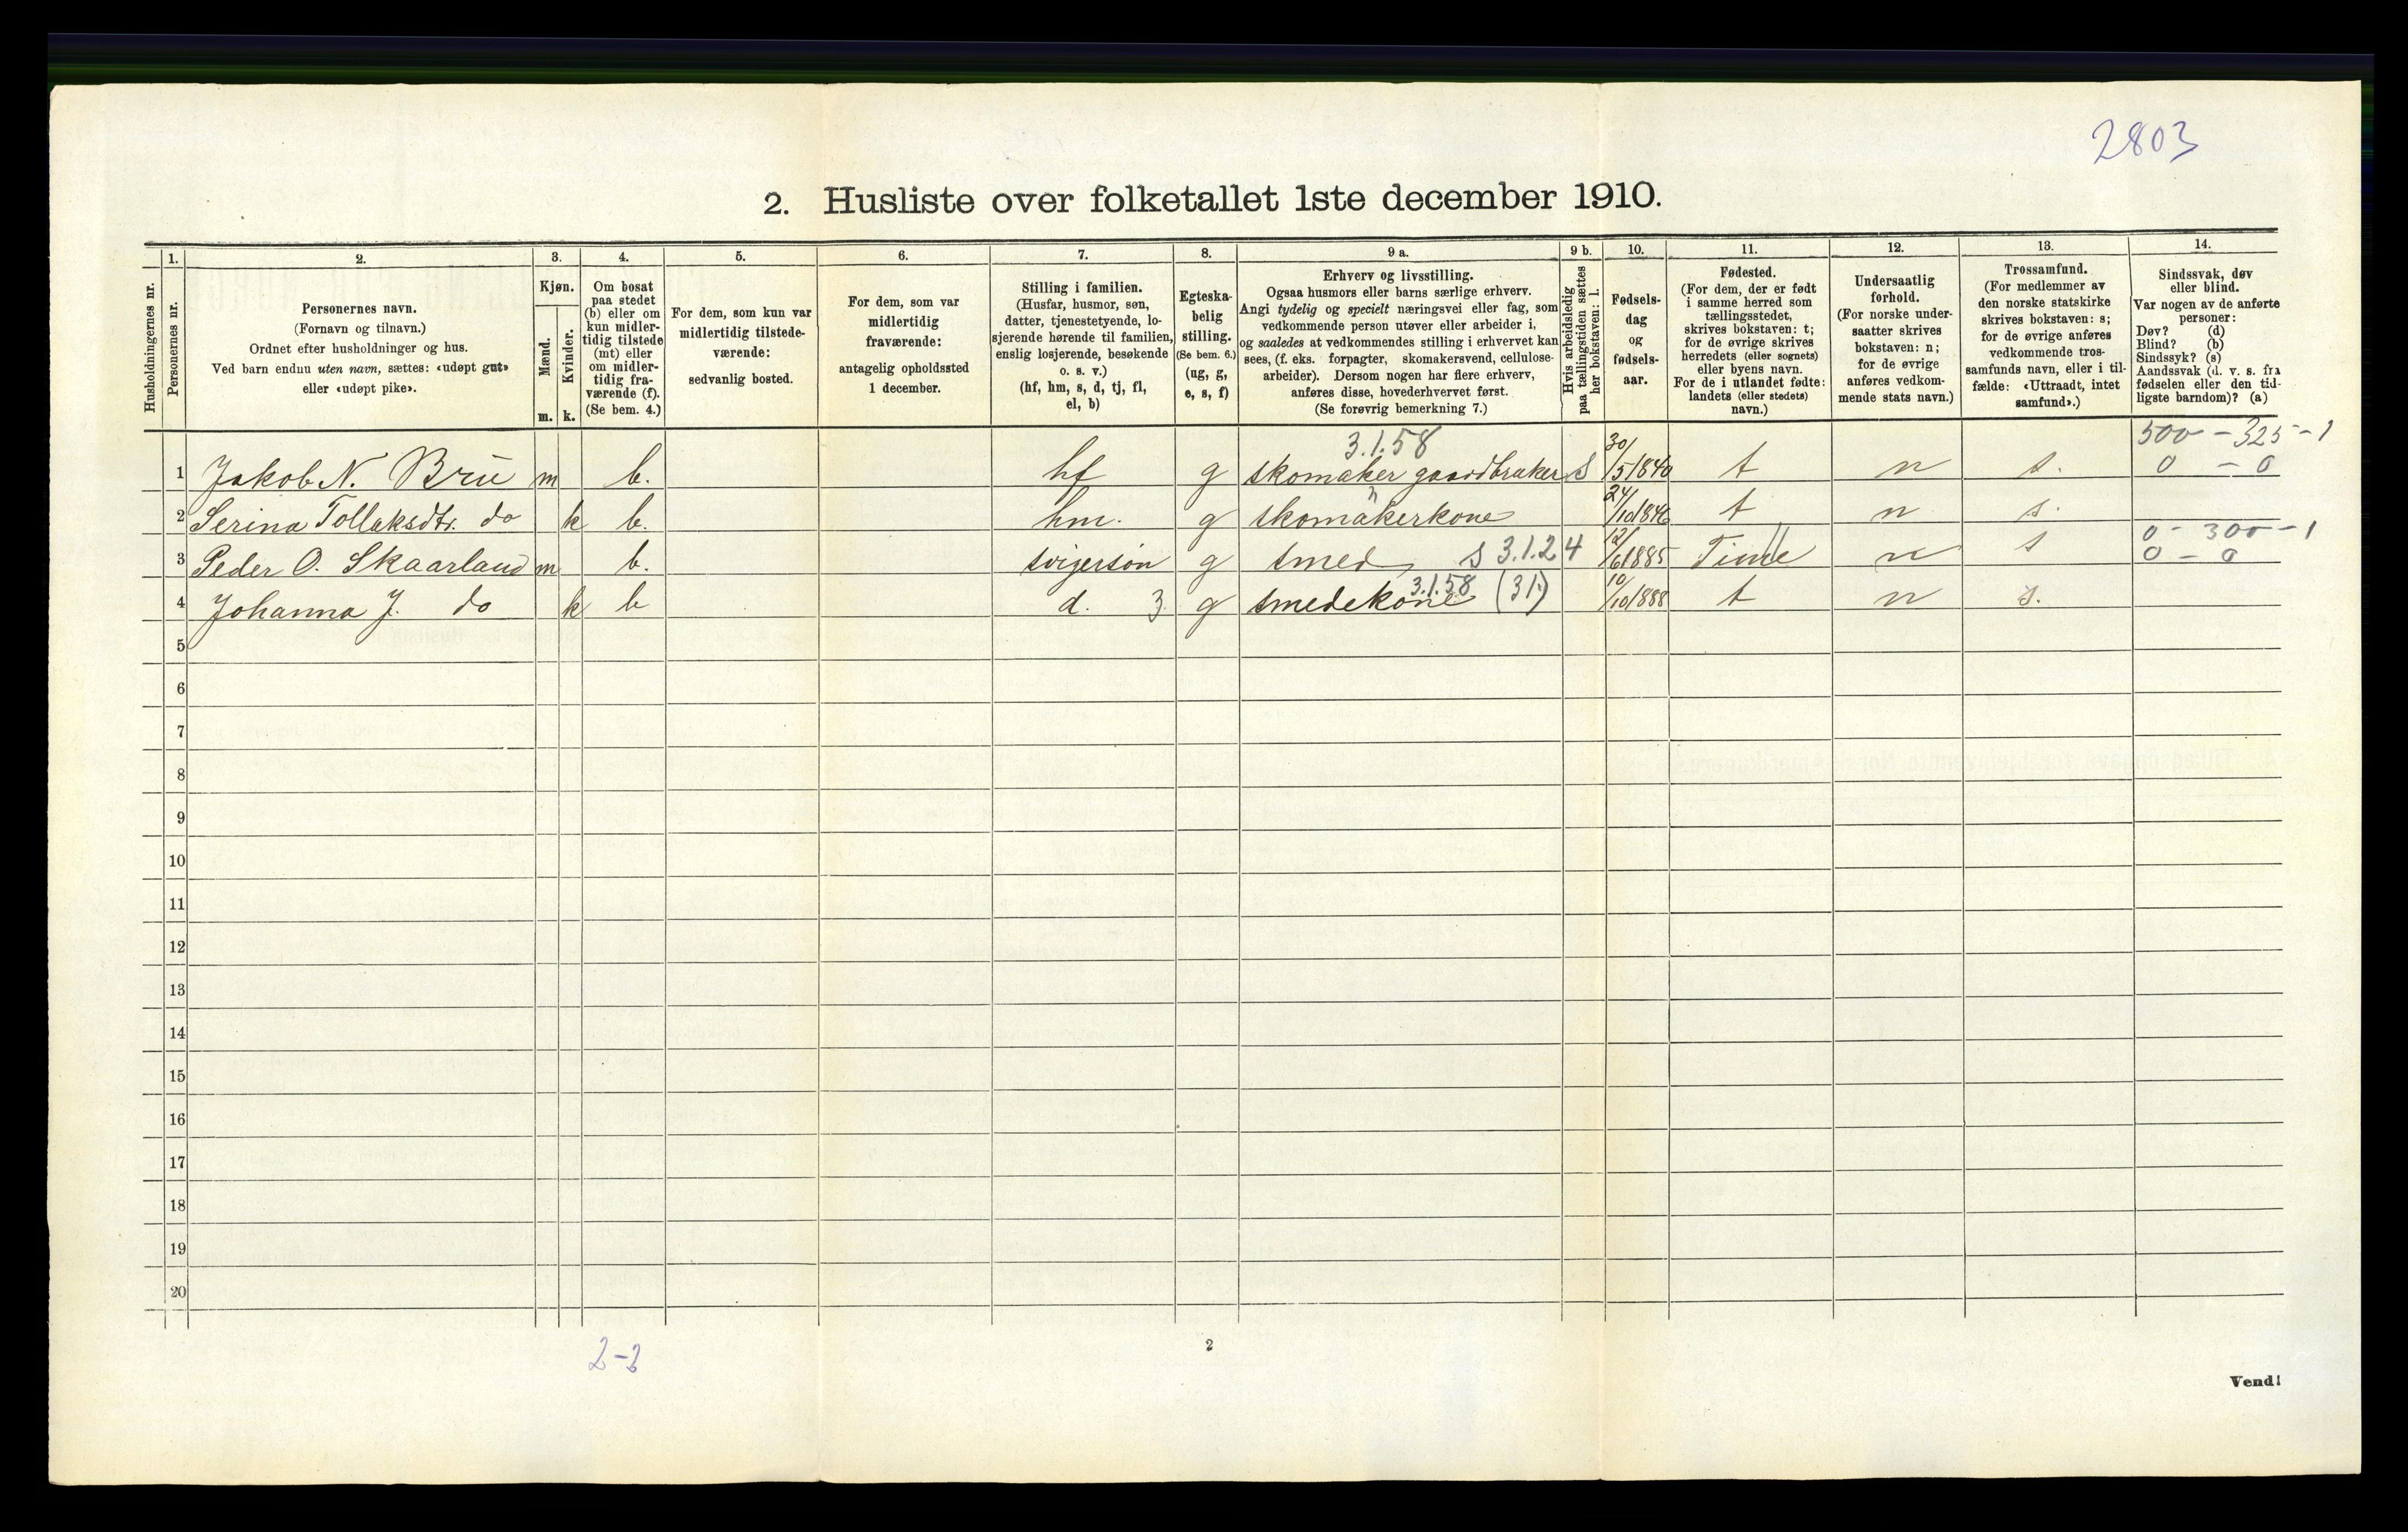 2803
2. Husliste over folketallet 1ste december 1910.
Husholdningernes nr.
1.
Personernes nr.
2.
Personernes navn.
(Fornavn og tilnavn.)
Ordnet efter husholdninger og hus.
Ved barn endnu uten navn, sættes: «udøpt gut»
eller «udøpt pike».
3.
Kjøn.
Mænd.
m.
Kvinder.
k.
4.
Om bosat
paa stedet
(b) eller om
kun midler-
tidig tilstede
(mt) eller
om midler-
tidig fra-
værende (f).
(Se bem. 4.)
5.
For dem, som kun var
midlertidig tilstede-
værende:
sedvanlig bosted.
6.
For dem, som var
midlertidig
fraværende:
antagelig opholdssted
1 december.
7.
Stilling i familien.
(Husfar, husmor, søn,
datter, tjenestetyende, lo-
sjerende hørende til familien,
enslig losjerende, besøkende
o. s. v.)
(hf, hm, s, d, tj, fl,
el, b)
8.
Egteska-
belig
stilling.
(Se bem. 6.)
(ug, g,
e, s, f)
9 a.
Erhverv og livsstilling.
Ogsaa husmors eller barns særlige erhverv.
Angi tydelig og specielt næringsvei eller fag, som
vedkommende person utøver eller arbeider i,
og saaledes at vedkommendes stilling i erhvervet kan
sees, (f. eks. forpagter, skomakersvend, cellulose-
arbeider). Dersom nogen har flere erhverv,
anføres disse, hovederhvervet først.
(Se forøvrig bemerkning 7.)
9 b.
Hvis arbeidsledig
paa tællingstiden sættes
her bokstaven: l.
10.
Fødsels-
dag
og
fødsels-
aar.
11.
Fødested.
(For dem, der er født
i samme herred som
tællingsstedet,
skrives bokstaven: t;
for de øvrige skrives
herredets (eller sognets)
eller byens navn.
For de i utlandet fødte:
landets (eller stedets)
navn.)
12.
Undersaatlig
forhold.
(For norske under-
saatter skrives
bokstaven: n;
for de øvrige
anføres vedkom-
mende stats navn.)
13.
Trossamfund.
(For medlemmer av
den norske statskirke
skrives bokstaven: s;
for de øvrige anføres
vedkommende tros-
samfunds navn, eller i til-
fælde: «Uttraadt, intet
samfund».)
14.
Sindssvak, døv
eller blind.
Var nogen av de anførte
personer:
Døv? (d)
Blind? (b)
Sindssyk? (s)
Aandssvak (d. v. s. fra
fødselen eller den tid-
ligste barndom)? (a)
3.1.58 500 - 325 - 1
1 Jakob N. Brü m b. hf g skomaker gaardbruker S 30/5 1840 t n s. 0 - 0
2 Serina Tollaksdtr. do k b. hm. g skomakerkone 24/10 1846 t n s.
0 - 300 - 1
3 Peder O. Skaarland m b. svigersön g smed S 3.1.24 12/6 1885 Time n s 0 - 0
3.1.58
4 Johanna J. do k b d. 3 g smedekone (31) 10/10 1888 t n s.
5
6
7
8
9
10
11
12
13
14
15
16
17
18
19
20
2-2
2
Vend!